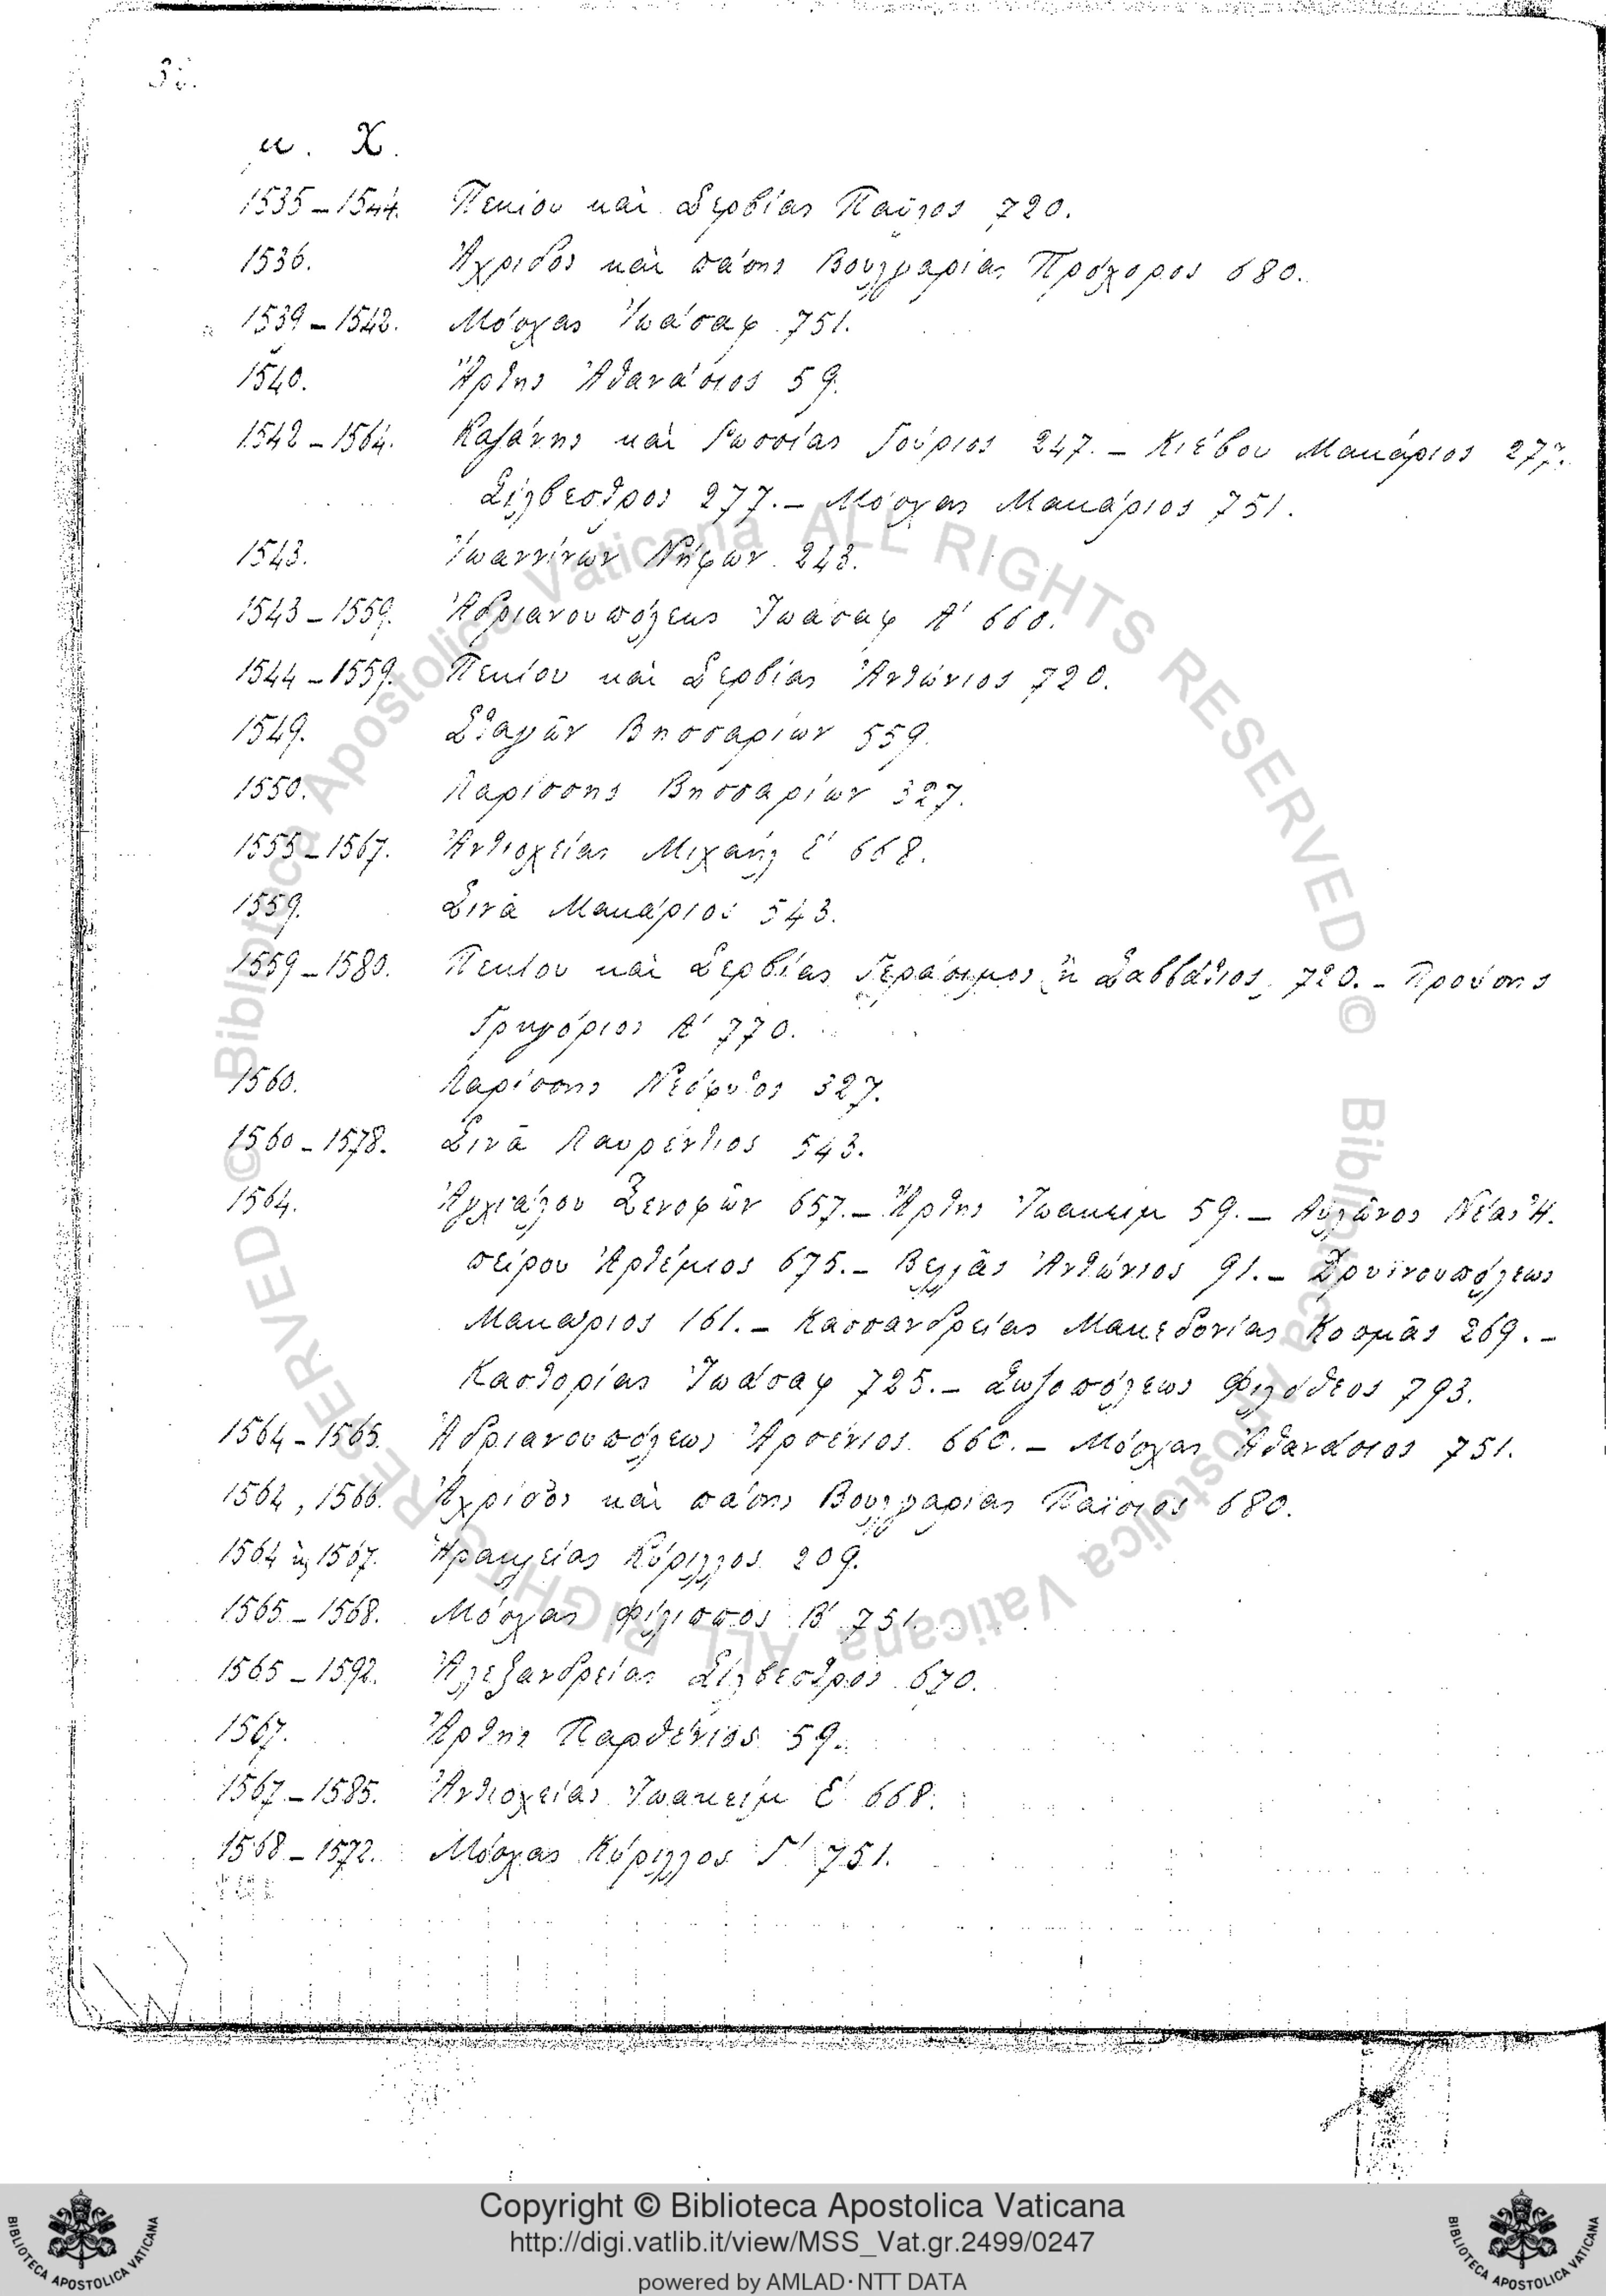 μ. Χ.
1535–1544. Πεκίου καὶ Σερβίας Παῦλος 720.
1536. Ἀχρίδος καὶ πάσης Βουλγαρίας Πρόχορος 680.
1539–1542. Μόσχας Ἰωάσαφ 751.
1540. Ἄρτης Ἀθανάσιος 59.
1542–1564. Καζάνης καὶ Ρωσσίας Γούριος 247. – Κιέβου Μακάριος 277.
Σίλβεστρος 277. – Μόσχας Μακάριος 751.
1543. Ἰωαννίνων Νήφων 243.
1543–1559. Ἀδριανουπόλεως Ἰωάσαφ Α' 660.
1544–1559. Πεκίου καὶ Σερβίας Ἀντώνιος 720.
1549. Σταγῶν Βησσαρίων 559.
1550. Λαρίσσης Βησσαρίων 327.
1555–1567. Ἀντιοχείας Μιχαήλ 668.
1559. Σινᾶ Μακάριος 543.
1559–1580. Πεκίου καὶ Σερβίας Γεράσιμος ἢ Σαββάτιος, 720. – Προύσης
Γρηγόριος Α' 770.
1560. Λαρίσσης Νεόφυτος 327.
1560–1578. Σινᾶ Λαυρέντιος 543.
1564. Ἀγχιάλου Ξενοφῶν 657. – Ἄρτης Ἰωακείμ 59. – Αὐλῶνος Νέας Ἠ-
πείρου Ἀρτέμιος 675. – Βελλᾶς Ἀντώνιος 91. – Δρυϊνουπόλεως
Μακάριος 161. – Κασσανδρείας Μακεδονίας Κοσμᾶς 269. –
Καστορίας Ἰωάσαφ 725. – Σωζοπόλεως Φιλόθεος 793.
1564–1565. Ἀδριανουπόλεως Ἀρσένιος 660. – Μόσχας Ἀθανάσιος 751.
1564, 1566. Ἀχρίδος καὶ πάσης Βουλγαρίας Παΐσιος 680.
1564 ἕως 1567. Ἡρακλείας Κύριλλος 209.
1565–1568. Μόσχας Φίλιππος Β' 751.
1565–1592. Ἀλεξανδρείας Σίλβεστρος 670.
1567. Ἄρτης Παρθένιος 59.
1567–1585. Ἀντιοχείας Ἰωακείμ Ε' 668.
1568–1572. Μόσχας Κύριλλος Γ' 751.
Copyright © Biblioteca Apostolica Vaticana
http://digi.vatlib.it/view/MSS_Vat.gr.2499/0247
powered by AMLAD·NTT DATA